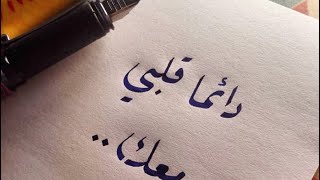 دائما قلبي
معك..